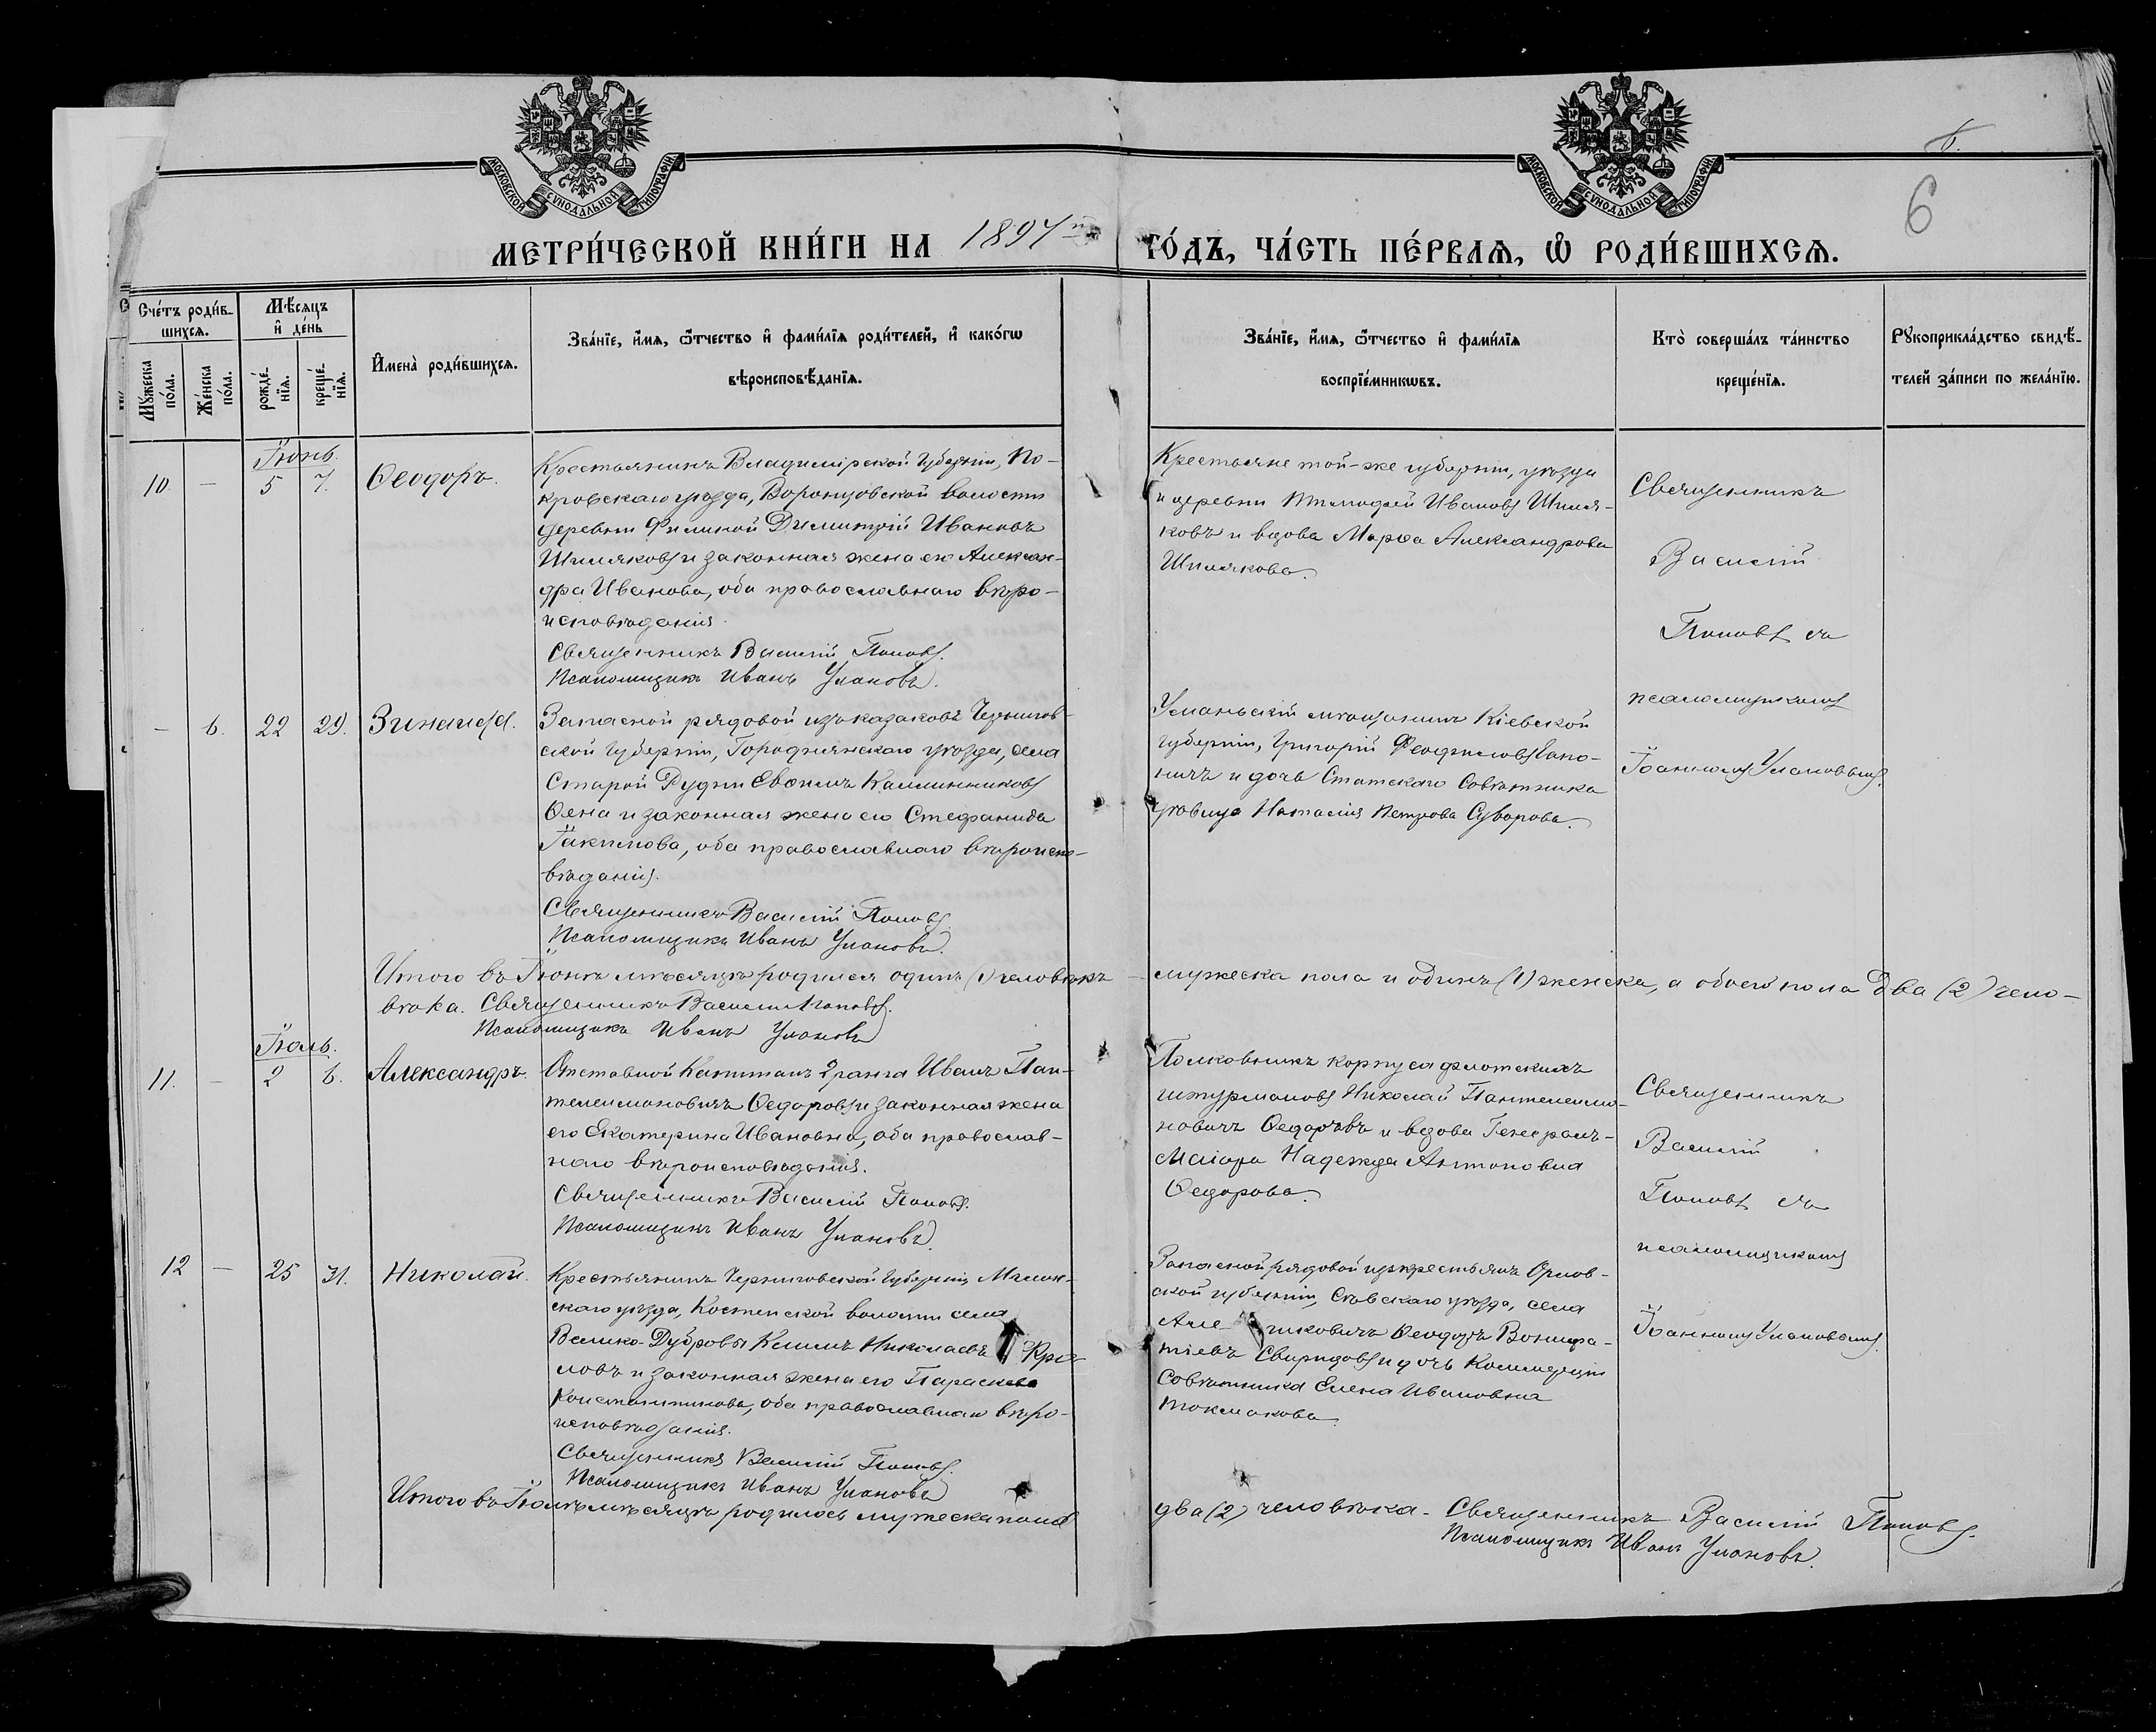 МОСКОВСКОЙ СѴНОДАЛЬНОЙ ТИПОГРАФІИ
МОСКОВСКОЙ СѴНОДАЛЬНОЙ ТИПОГРАФІИ
6
МЕТРИ́ЧЕСКОЙ КНИ́ГИ НА 1894 ГО́ДЪ, ЧА́СТЬ ПЕ́РВАѦ, Ѡ РОДИ́ВШИХСѦ.
Сче́тъ роди́в-
шихсѧ.
Мѣ́сѧцъ
и҆ де́нь
Мꙋ́жеска
по́ла.
Же́нска
по́ла.
рожде́-
нїѧ.
креще́-
нїѧ.
И҆мена̀ роди́вшихсѧ.
Зва́нїе, и҆́мѧ, ѻ҆́тчество и҆ фами́лїѧ роди́телей, и҆ како́гѡ
вѣроисповѣ́данїѧ.
Зва́нїе, и҆́мѧ, ѻ҆́тчество и҆ фами́лїѧ
воспрїе́мникѡвъ.
Кто̀ соверша́лъ та́инство
креще́нїѧ.
Рꙋкоприкла́дство свидѣ́-
телей за́писи по жела́нїю.
Іюнь.
10. — 5 7. Ѳеодоръ.
Крестьянинъ Владимірской губерніи, По-
кровскаго уѣзда, Воронцовской волости
деревни Филиной Димитрій Ивановъ
Шиляковъ и законная жена его Алексан-
дра Иванова, оба православнаго вѣро-
исповѣданія.
Священникъ Василій Поповъ.
Псаломщикъ Иванъ Улановъ.
Крестьяне той-же губерніи, уѣзда
и деревни Тимофей Ивановъ Шиля-
ковъ и вдова Марѳа Александрова
Шилякова.
Священникъ
Василій
Поповъ съ
псаломщикомъ
Іоанномъ Улановымъ.
— 6. 22 29. Зинаида.
Запасной рядовой изъ казаковъ Чернигов-
ской губерніи, Городнянскаго уѣзда, села
Старой Рудни Евѳимъ Каллинниковъ
Ѳена и законная жена его Стефанида
Іакимова, оба православнаго вѣроиспо-
вѣданія.
Священникъ Василій Поповъ.
Псаломщикъ Иванъ Улановъ.
Уманьскій мѣщанинъ Кіевской
губерніи, Григорій Феофиловъ
и дочь Статскаго Совѣтника
дѣвица Наталія Петрова Суворова.
Итого въ Іюнѣ мѣсяцѣ родился одинъ (1) человѣкъ мужеска пола и одинъ (1) женска, а обоего пола два (2) чело-
вѣка. Священникъ Василій Поповъ.
Псаломщикъ Иванъ Улановъ
Іюль.
11. — 2 6. Александръ.
Отставной Капитанъ 2 ранга Иванъ Пан-
телеимоновичъ Ѳедоровъ и законная жена
его Екатерина Ивановна, оба православ-
наго вѣроисповѣданія.
Священникъ Василій Поповъ.
Псаломщикъ Иванъ Улановъ.
Полковникъ корпуса флотскихъ
штурмановъ Николай Пантелеимо-
новичъ Ѳедоровъ и вдова Генералъ-
Маіора Надежда Антоновна
Ѳедорова.
Священникъ
Василій
Поповъ съ
псаломщикомъ
Іоанномъ Улановымъ.
12 — 25 31. Николай.
Крестьянинъ Черниговской губерніи Мглин-
скаго уѣзда, Костенской волости села
Велико-Дубровы Климъ Николаевъ Кры-
ловъ и законная жена его Параскева
Константинова, оба православнаго вѣро-
исповѣданія.
Священникъ Василій Поповъ.
Псаломщикъ Иванъ Улановъ
Запасной рядовой изъ крестьянъ Орлов-
ской губерніи, Сѣвскаго уѣзда, села
Ѳеодоръ Вонифа-
тіевъ Свиридовъ и дочь Коллежскаго
Совѣтника Елена Ивановна
Токмакова.
Итого въ Іюлѣ мѣсяцѣ родилось мужеска пола два (2) человѣка. Священникъ Василій Поповъ.
Псаломщикъ Иванъ Улановъ.